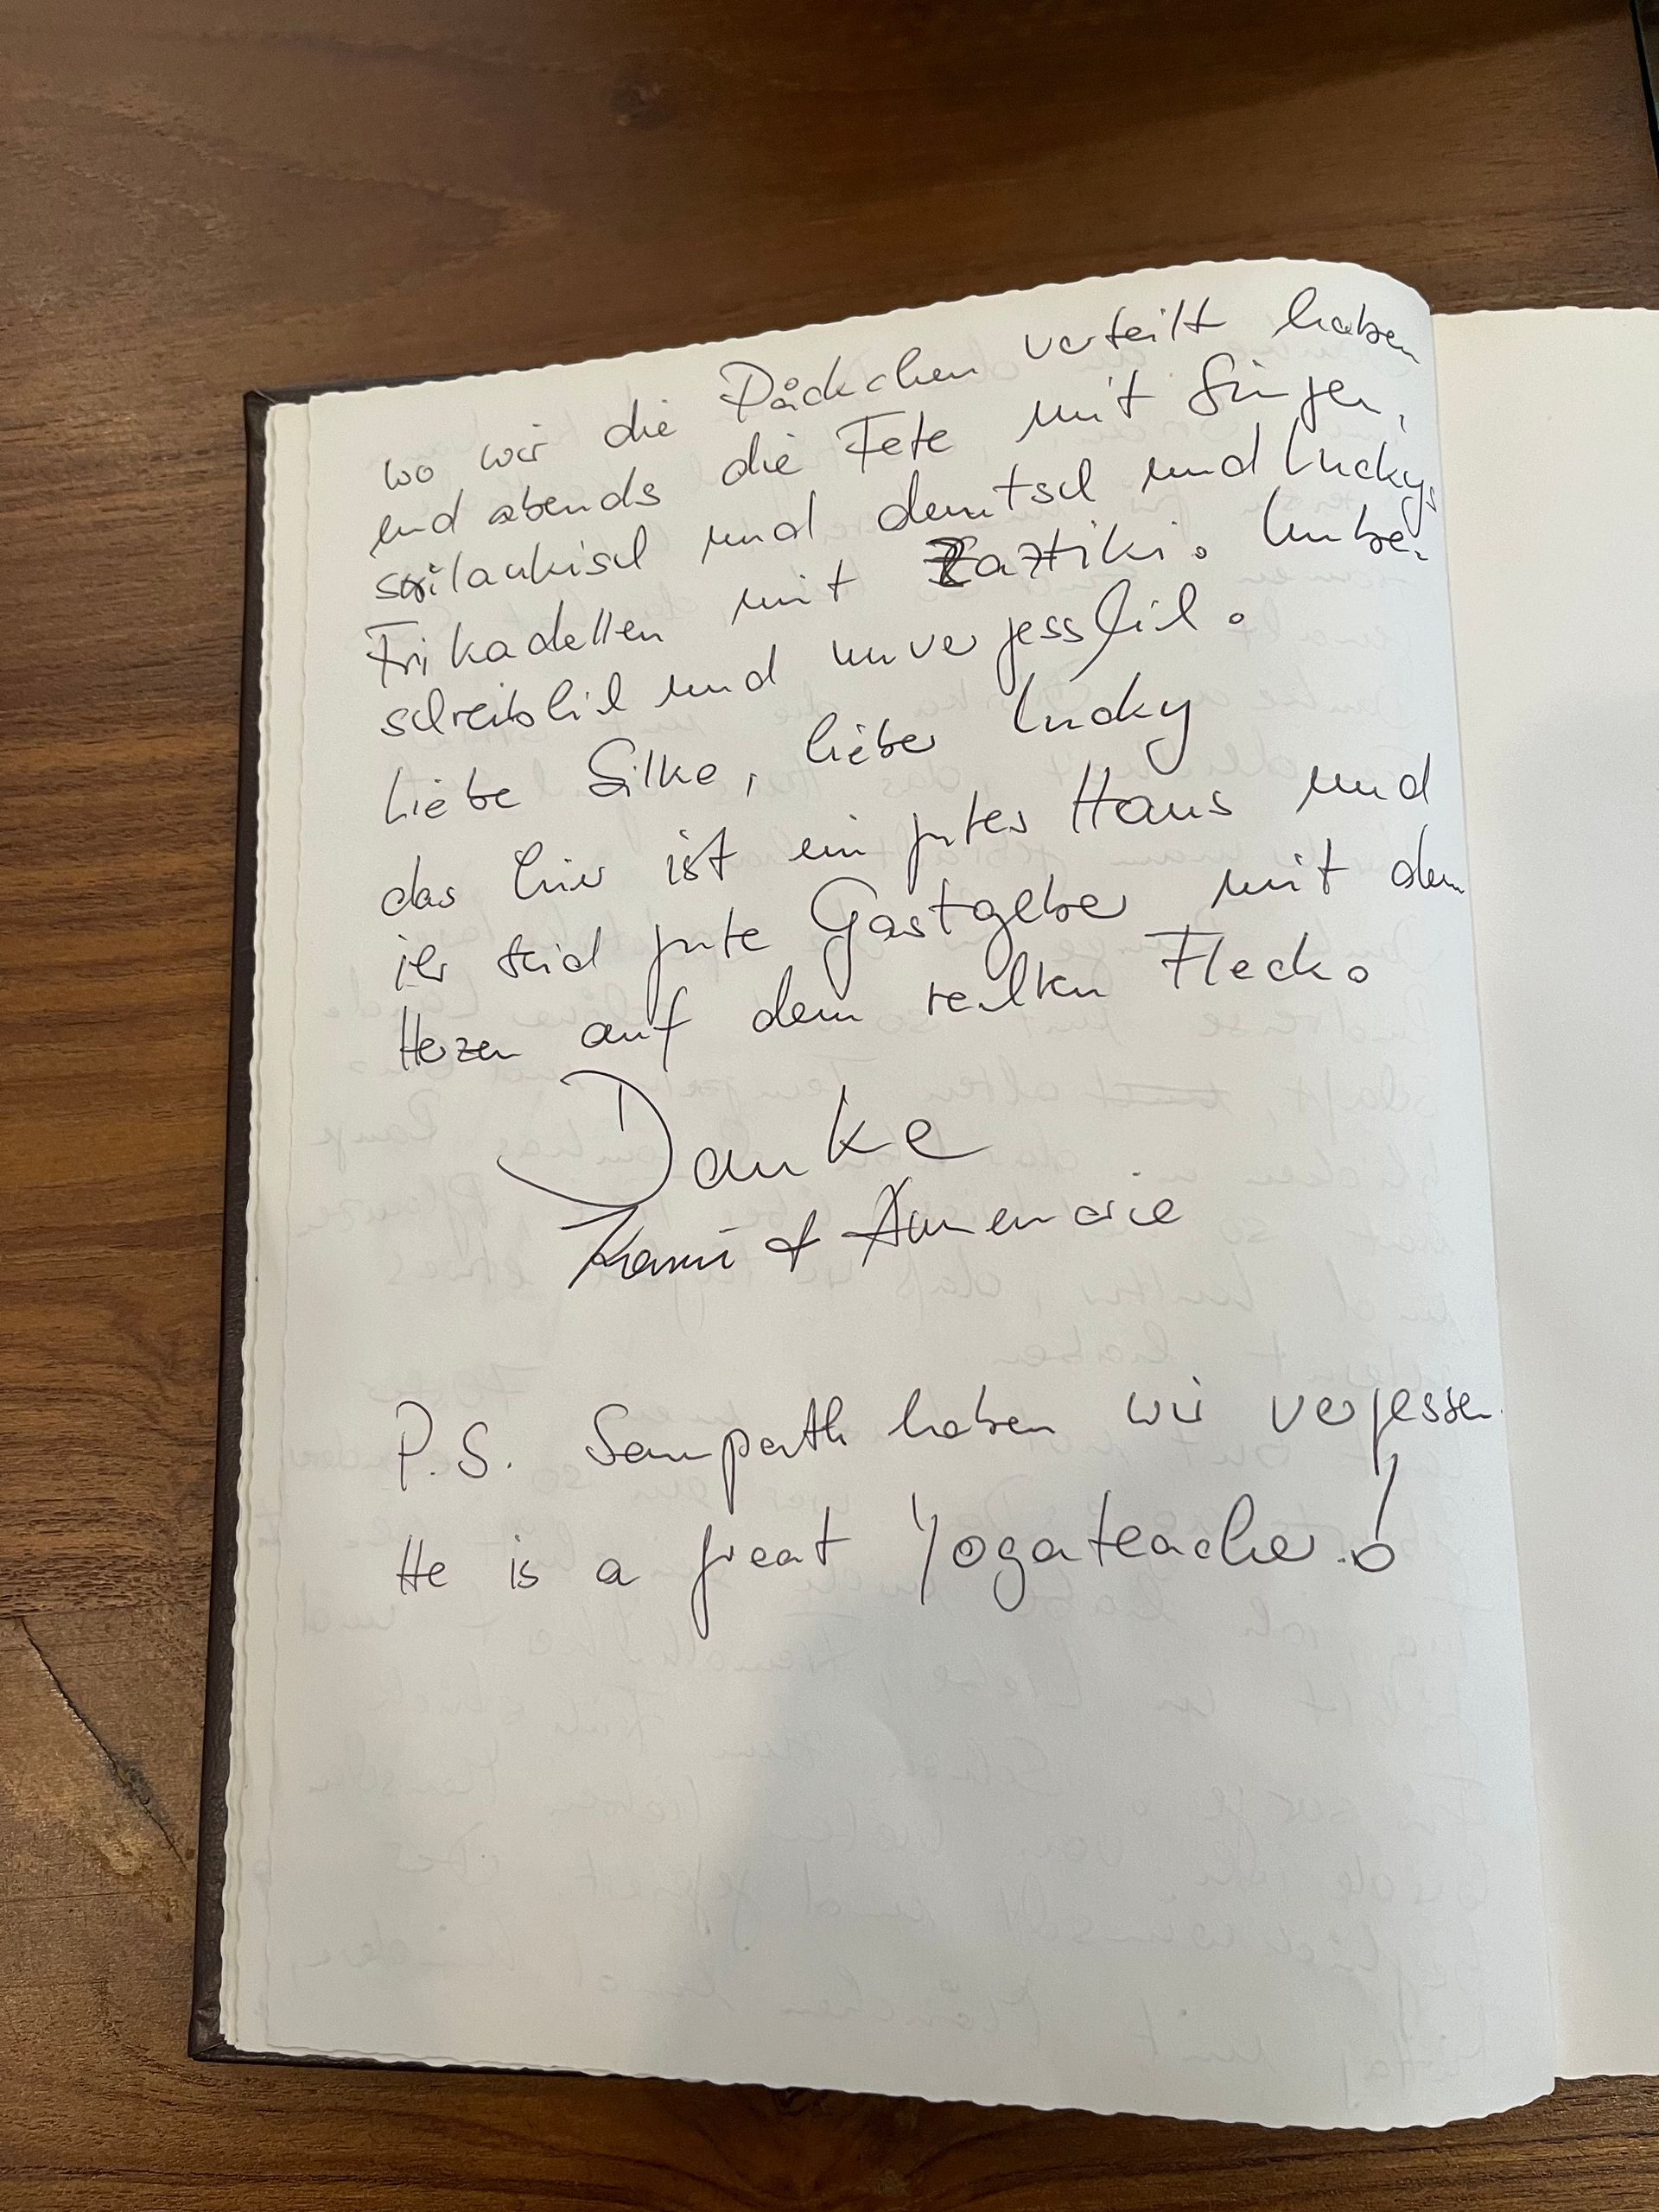 wo wir die Päckchen verteilt haben
und abends die Fete mit Singen,
srilankisch und deutsch und Luckys
Frikadellen mit Zaztiki. Unbe-
schreiblich und unvergesslich.
Liebe Silke, lieber Lucky
das hier ist ein gutes Haus und
ihr seid gute Gastgeber mit dem
Herzen auf dem rechten Fleck.
Danke
& Annemarie
P.S. Sampath haben wir vergessen.
He is a great Yogateacher!